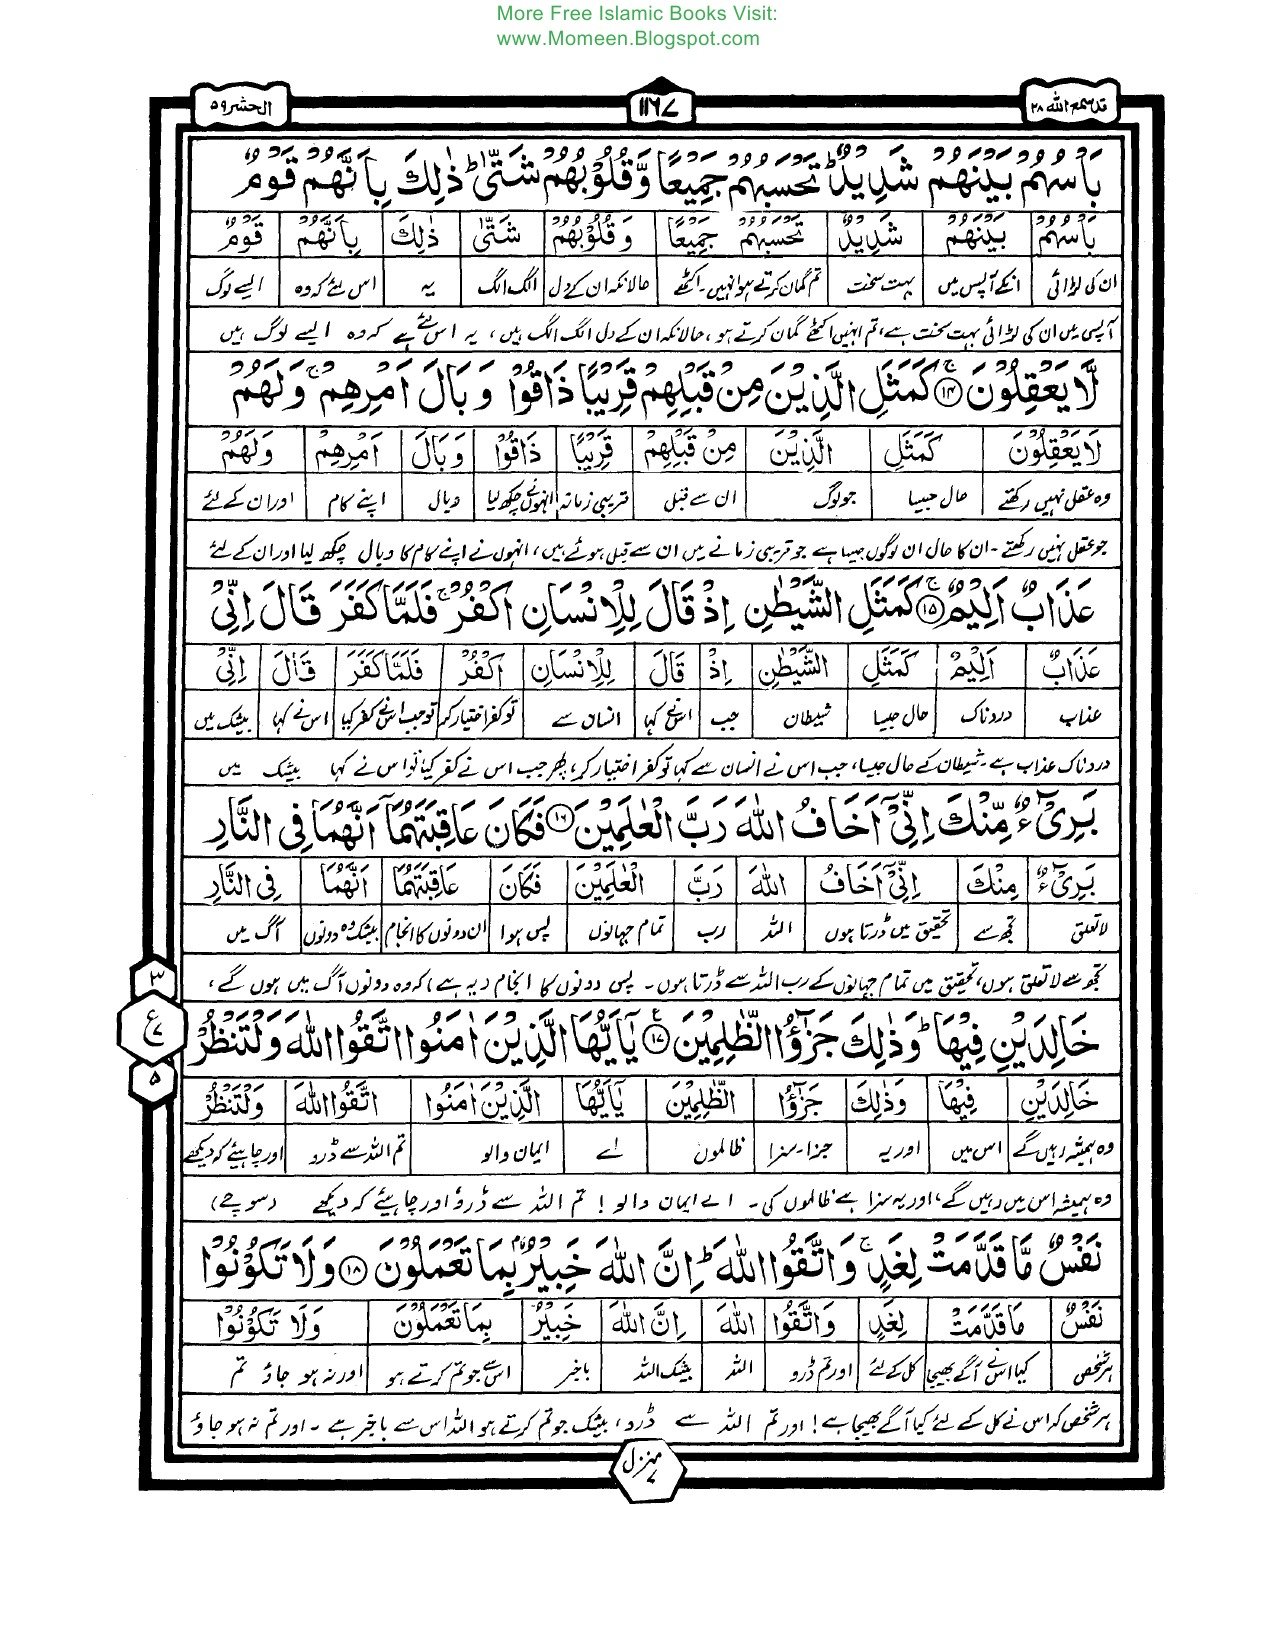 More Free Islamic Books Visit:
www.Momeen.Blogspot.com
قد سمع الله ۲۸
۱۱۶۷
الحشر ۵۹
بَاْسُهُمْ بَيْنَهُمْ شَدِيْدٌ ؕ تَحْسَبُهُمْ جَمِيْعًا وَّقُلُوْبُهُمْ شَتّٰى ؕ ذٰلِكَ بِاَنَّهُمْ قَوْمٌ
بَاْسُهُمْ بَيْنَهُمْ شَدِيْدٌ تَحْسَبُهُمْ جَمِيْعًا وَّقُلُوْبُهُمْ شَتّٰى ذٰلِكَ بِاَنَّهُمْ قَوْمٌ
ان کی لڑائی انکے آپس میں بہت سخت تم گمان کرتے ہو انہیں۔ اکٹھے حالانکہ ان کے دل الگ الگ یہ اس لئے کہ وہ ایسے لوگ
آپس میں ان کی لڑائی بہت سخت ہے، تم انہیں اکٹھے گمان کرتے ہو، حالانکہ ان کے دل الگ الگ ہیں، یہ اس لئے ہے کہ وہ ایسے لوگ ہیں
لَّا يَعْقِلُوْنَ ۚ ۱۴ كَمَثَلِ الَّذِيْنَ مِنْ قَبْلِهِمْ قَرِيْبًا ذَاقُوْا وَبَالَ اَمْرِهِمْ ۚ وَلَهُمْ
لَا يَعْقِلُوْنَ كَمَثَلِ الَّذِيْنَ مِنْ قَبْلِهِمْ قَرِيْبًا ذَاقُوْا وَبَالَ اَمْرِهِمْ وَلَهُمْ
وہ عقل نہیں رکھتے حال جیسا جو لوگ ان سے قبل قریبی زمانہ انہوں نے چکھ لیا وبال اپنے کام اور ان کے لئے
جو عقل نہیں رکھتے۔ ان کا حال ان لوگوں جیسا ہے جو قریبی زمانے میں ان سے قبل ہوئے ہیں، انہوں نے اپنے کام کا وبال چکھ لیا اور ان کے لئے
عَذَابٌ اَلِيْمٌ ۚ ۱۵ كَمَثَلِ الشَّيْطٰنِ اِذْ قَالَ لِلْاِنْسَانِ اكْفُرْ ۚ فَلَمَّا كَفَرَ قَالَ اِنِّىْ
عَذَابٌ اَلِيْمٌ كَمَثَلِ الشَّيْطٰنِ اِذْ قَالَ لِلْاِنْسَانِ اكْفُرْ فَلَمَّا كَفَرَ قَالَ اِنِّىْ
عذاب دردناک حال جیسا شیطان جب اس نے کہا انسان سے تو کفر اختیار کر تو جب اس نے کفر کیا اس نے کہا بیشک میں
دردناک عذاب ہے۔ شیطان کے حال جیسا، جب اس نے انسان سے کہا تو کفر اختیار کر، پھر جب اس نے کفر کیا تو اس نے کہا بیشک میں
بَرِىْٓءٌ مِّنْكَ اِنِّىْٓ اَخَافُ اللّٰهَ رَبَّ الْعٰلَمِيْنَ ۱۶ فَكَانَ عَاقِبَتَهُمَآ اَنَّهُمَا فِى النَّارِ
بَرِىْٓءٌ مِنْكَ اِنِّىْٓ اَخَافُ اللّٰهَ رَبَّ الْعٰلَمِيْنَ فَكَانَ عَاقِبَتَهُمَا اَنَّهُمَا فِى النَّارِ
لاتعلق تجھ سے تحقیق میں ڈرتا ہوں اللہ رب تمام جہانوں پس ہوا ان دونوں کا انجام بیشک وہ دونوں آگ میں
تجھ سے لاتعلق ہوں، تحقیق میں تمام جہانوں کے رب اللہ سے ڈرتا ہوں۔ پس دونوں کا انجام دیہ ہے، کہ وہ دونوں آگ میں ہوں گے،
۳
ع
۷
۵
خَالِدَيْنِ فِيْهَا ؕ وَذٰلِكَ جَزٰٓؤُا الظّٰلِمِيْنَ ۱۷ يٰٓاَيُّهَا الَّذِيْنَ اٰمَنُوا اتَّقُوا اللّٰهَ وَلْتَنْظُرْ
خَالِدَيْنِ فِيْهَا وَذٰلِكَ جَزٰٓؤُا الظّٰلِمِيْنَ يٰٓاَيُّهَا الَّذِيْنَ اٰمَنُوا اتَّقُوا اللّٰهَ وَلْتَنْظُرْ
وہ ہمیشہ رہیں گے اس میں اور یہ جزا۔ سزا ظالموں اے ایمان والو تم اللہ سے ڈرو اور چاہئے کہ دیکھے
وہ ہمیشہ اس میں رہیں گے، اور یہ سزا ہے ظالموں کی۔ اے ایمان والو! تم اللہ سے ڈرو اور چاہئے کہ دیکھے (سوچے)
نَفْسٌ مَّا قَدَّمَتْ لِغَدٍ ۚ وَاتَّقُوا اللّٰهَ ؕ اِنَّ اللّٰهَ خَبِيْرٌۢ بِمَا تَعْمَلُوْنَ ۱۸ وَلَا تَكُوْنُوْا
نَفْسٌ مَا قَدَّمَتْ لِغَدٍ وَاتَّقُوا اللّٰهَ اِنَّ اللّٰهَ خَبِيْرٌ بِمَا تَعْمَلُوْنَ وَلَا تَكُوْنُوْا
ہر شخص کیا اس نے آگے بھیجا کل کے لئے اور تم ڈرو اللہ بیشک اللہ باخبر اس سے جو تم کرتے ہو اور نہ ہو جاؤ تم
ہر شخص کہ اس نے کل کے لئے کیا آگے بھیجا ہے! اور تم اللہ سے ڈرو، بیشک جو تم کرتے ہو اللہ اس سے باخبر ہے۔ اور تم نہ ہو جاؤ
منزل ۷